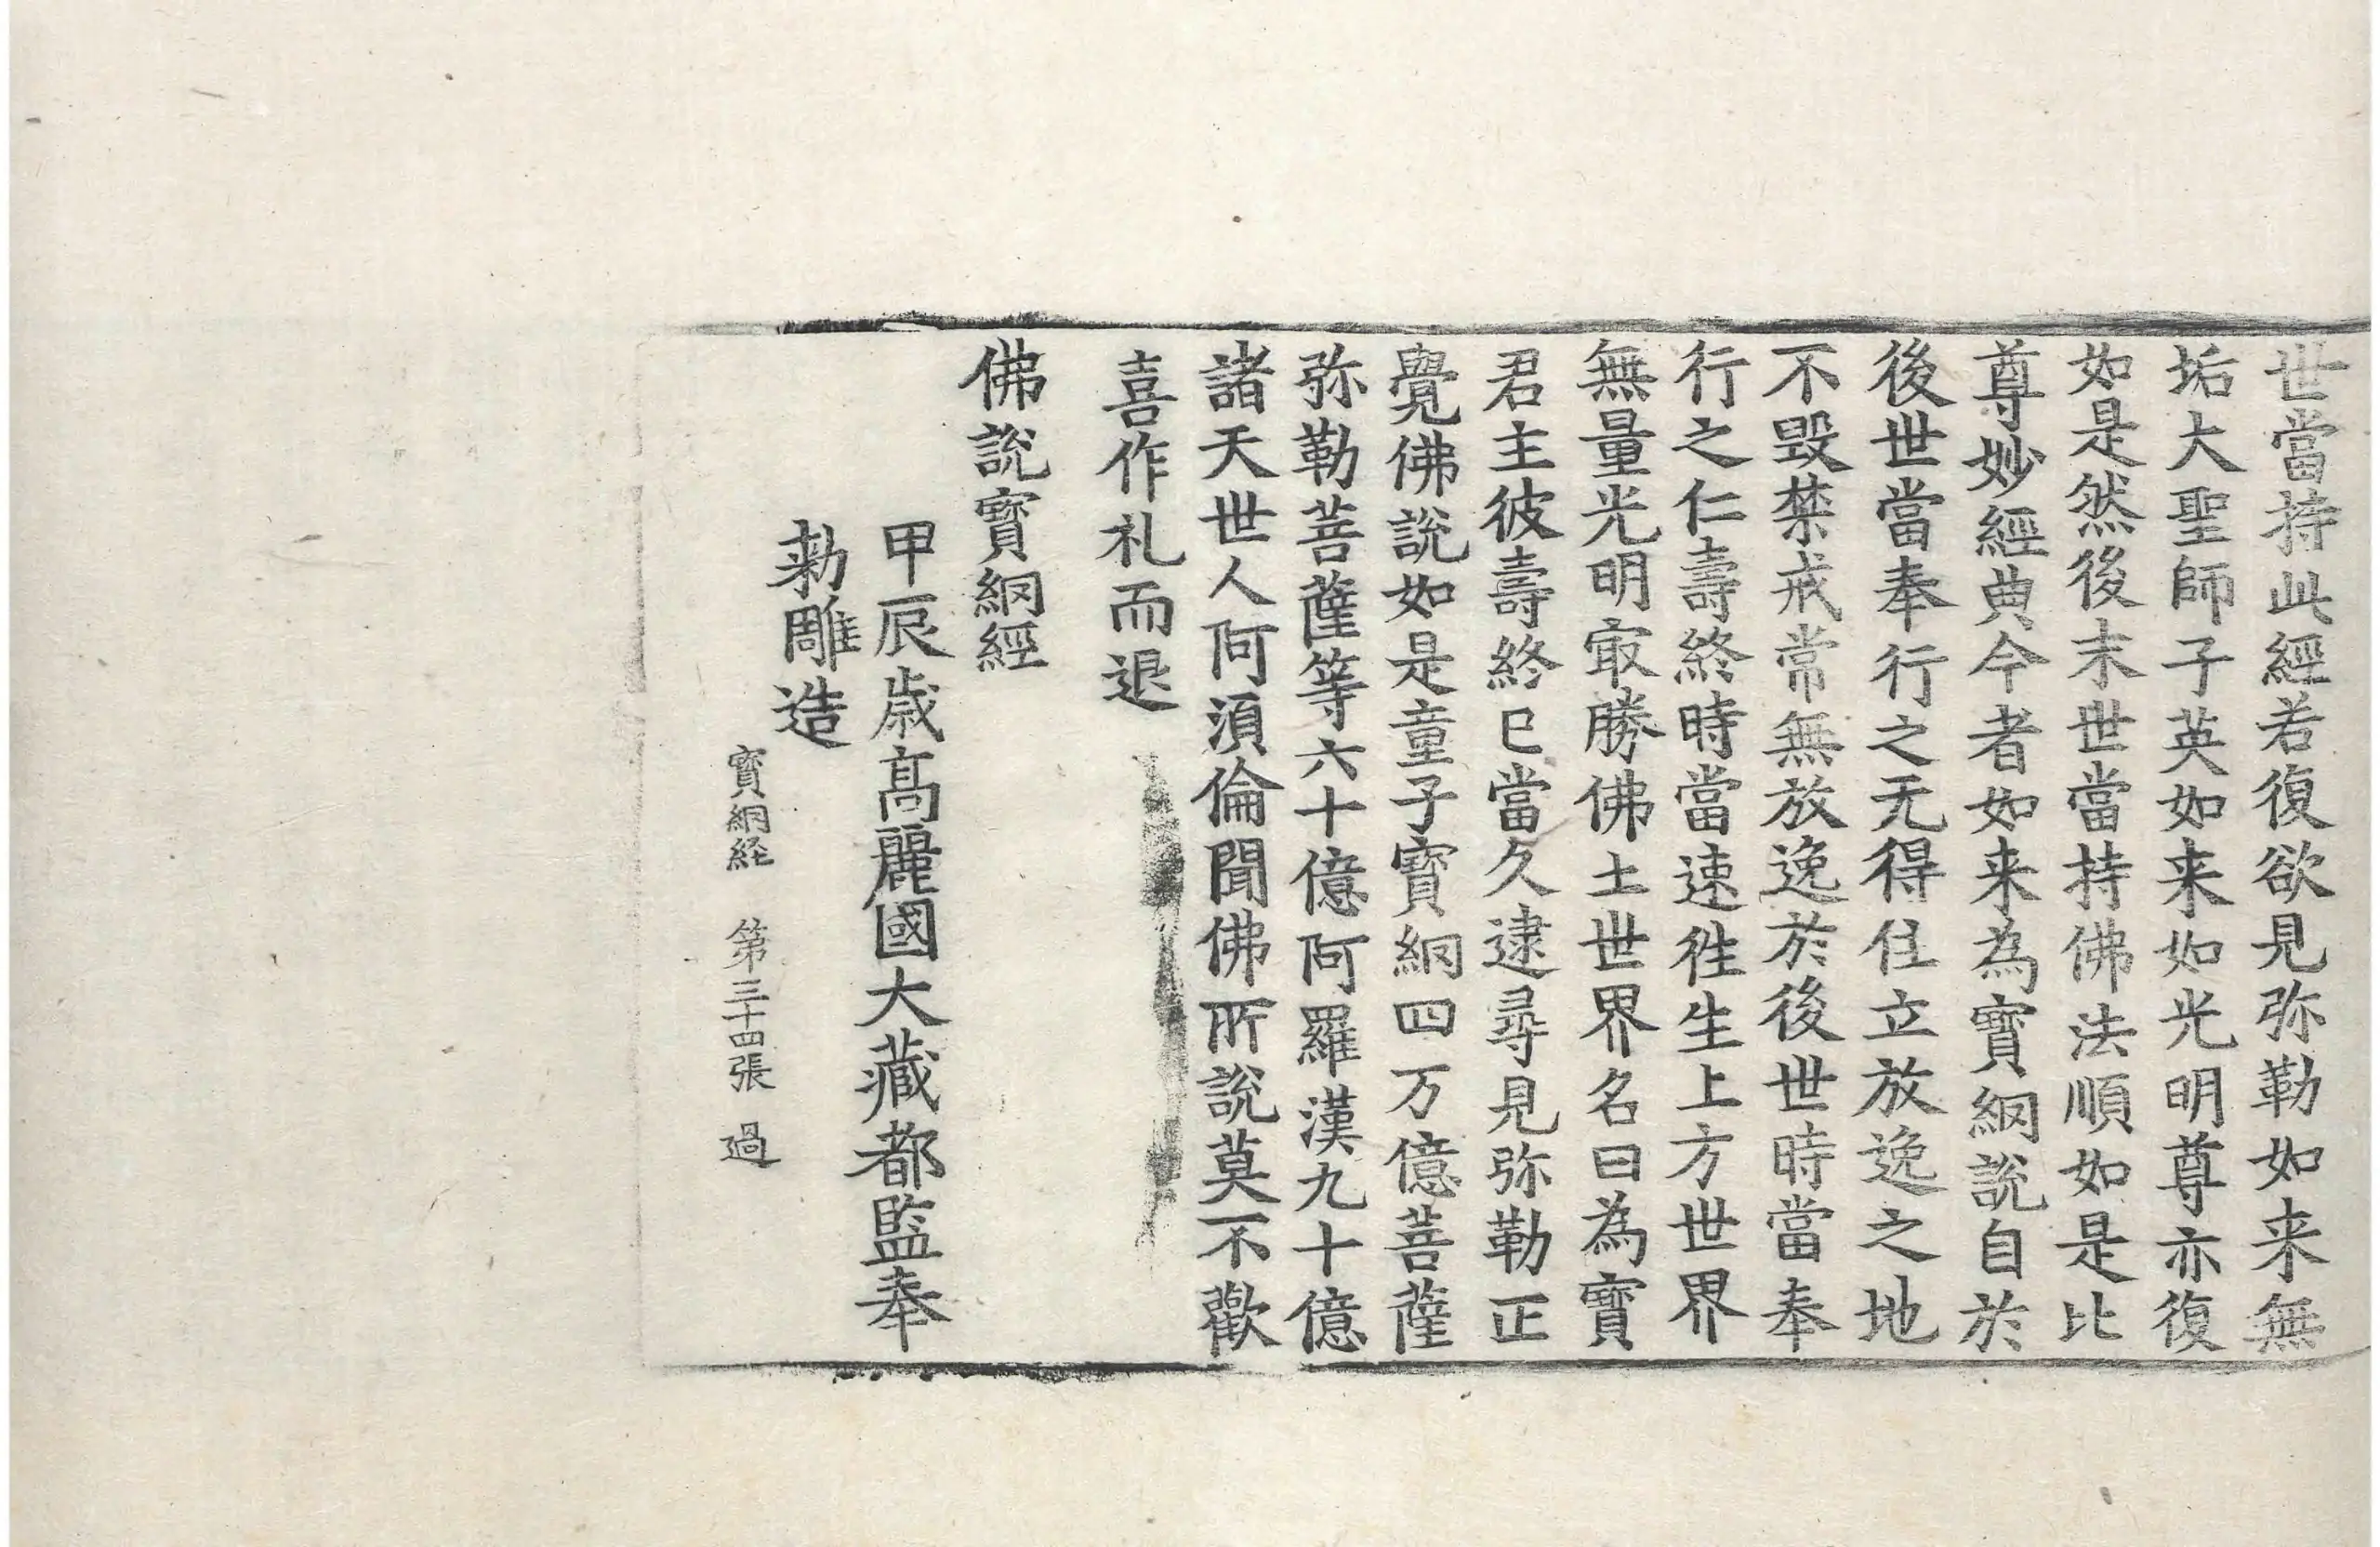 世當持此經若復欲見弥勒如来無
垢大聖師子英如来如光明尊亦復
如是然後末世當持佛法順如是比
尊妙經典今者如来為寳網說自於
後世當奉行之无得住立放逸之地
不毀禁戒常無放逸於後世時當奉
行之仁壽終時當速徃生上方世界
無量光明㝡勝佛土世界名曰為寳
君主彼壽終已當久逮尋見弥勒正
覺佛說如是童子寳網四万億菩薩
弥勒菩薩等六十億阿羅漢九十億
諸天世人阿湏倫聞佛所說莫不歡
喜作礼而退
佛說寳網經
甲辰歲高麗國大藏都監奉
勑雕造
寳網経 第三十四張 過